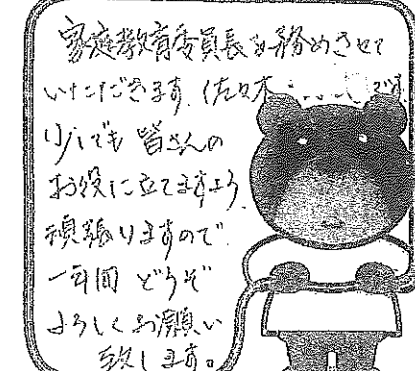 家庭教育委員長を務めさせて
いただきます、佐々木 です。
少しでも皆さんの
お役に立てますよう
頑張りますので
一年間 どうぞ
よろしくお願い
致します。